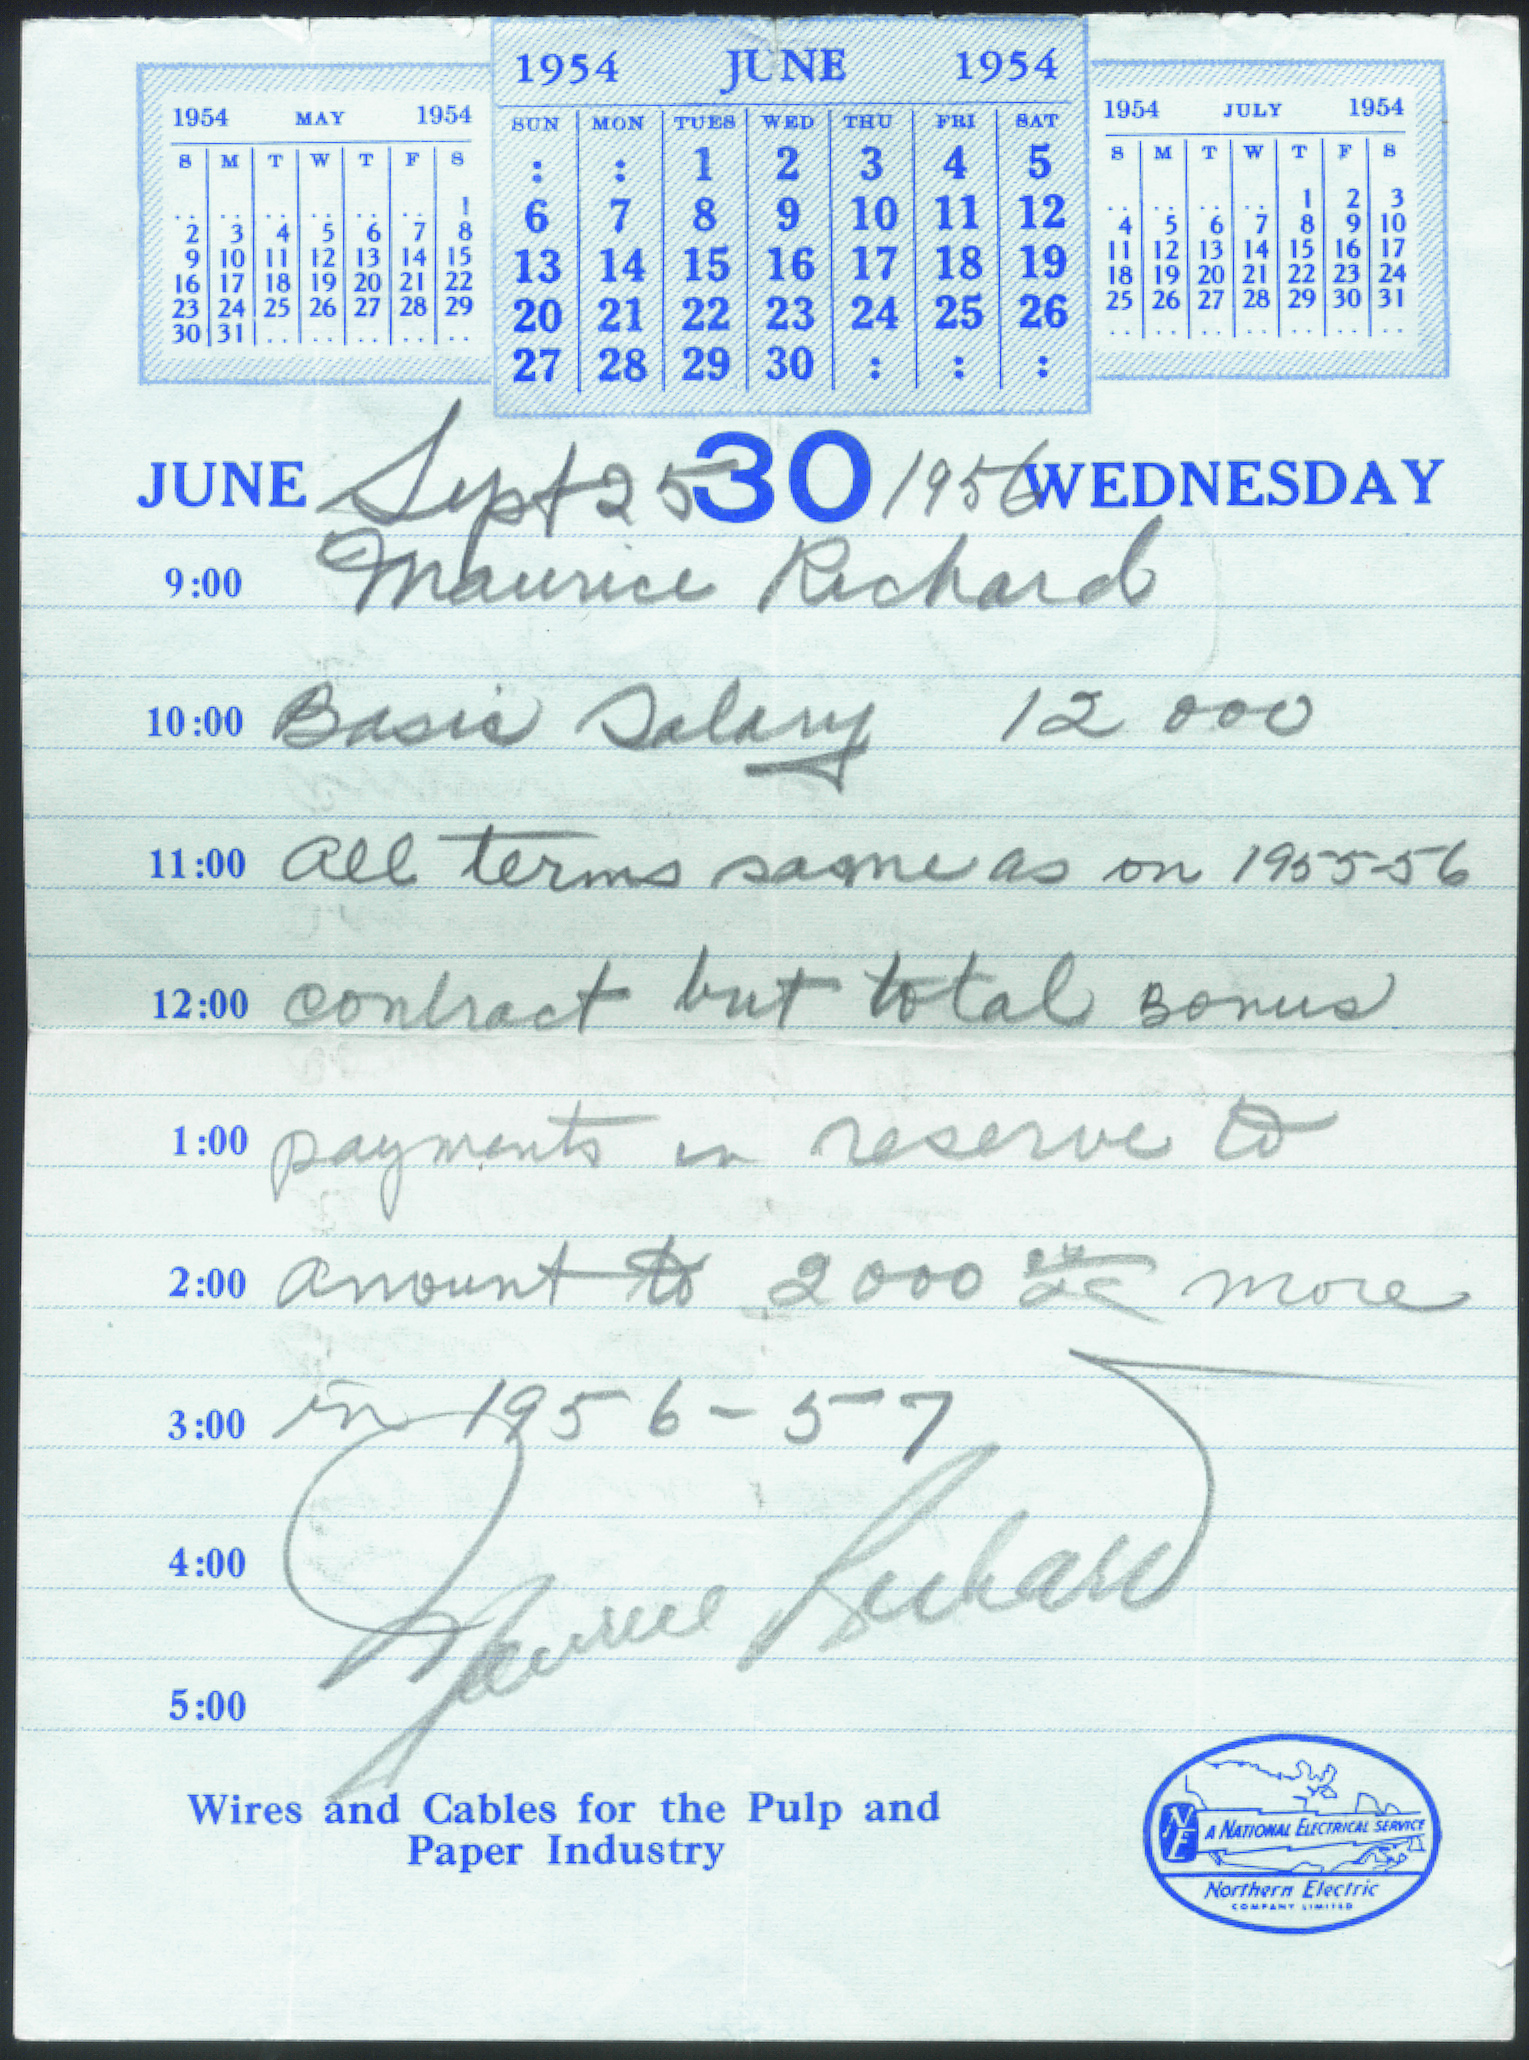 1954 MAY 1954
S M T W T F S
.. .. .. .. .. .. 1
2 3 4 5 6 7 8
9 10 11 12 13 14 15
16 17 18 19 20 21 22
23 24 25 26 27 28 29
30 31 .. .. .. .. ..
1954 JUNE 1954
SUN MON TUES WED THU FRI SAT
: : 1 2 3 4 5
6 7 8 9 10 11 12
13 14 15 16 17 18 19
20 21 22 23 24 25 26
27 28 29 30 : : :
1954 JULY 1954
S M T W T F S
.. .. .. .. 1 2 3
4 5 6 7 8 9 10
11 12 13 14 15 16 17
18 19 20 21 22 23 24
25 26 27 28 29 30 31
.. .. .. .. .. .. ..
JUNE 30 WEDNESDAY
Sept 25 1956
9:00 Maurice Richard
10:00 Basic Salary 12 000
11:00 All terms same as on 1955-56
12:00 contract but total Bonus
1:00 payments in reserve to
2:00 amount to 2000 more
3:00 in 1956-57
4:00 Maurice Richard
5:00
Wires and Cables for the Pulp and
Paper Industry
NE
A NATIONAL ELECTRICAL SERVICE
Northern Electric
COMPANY LIMITED